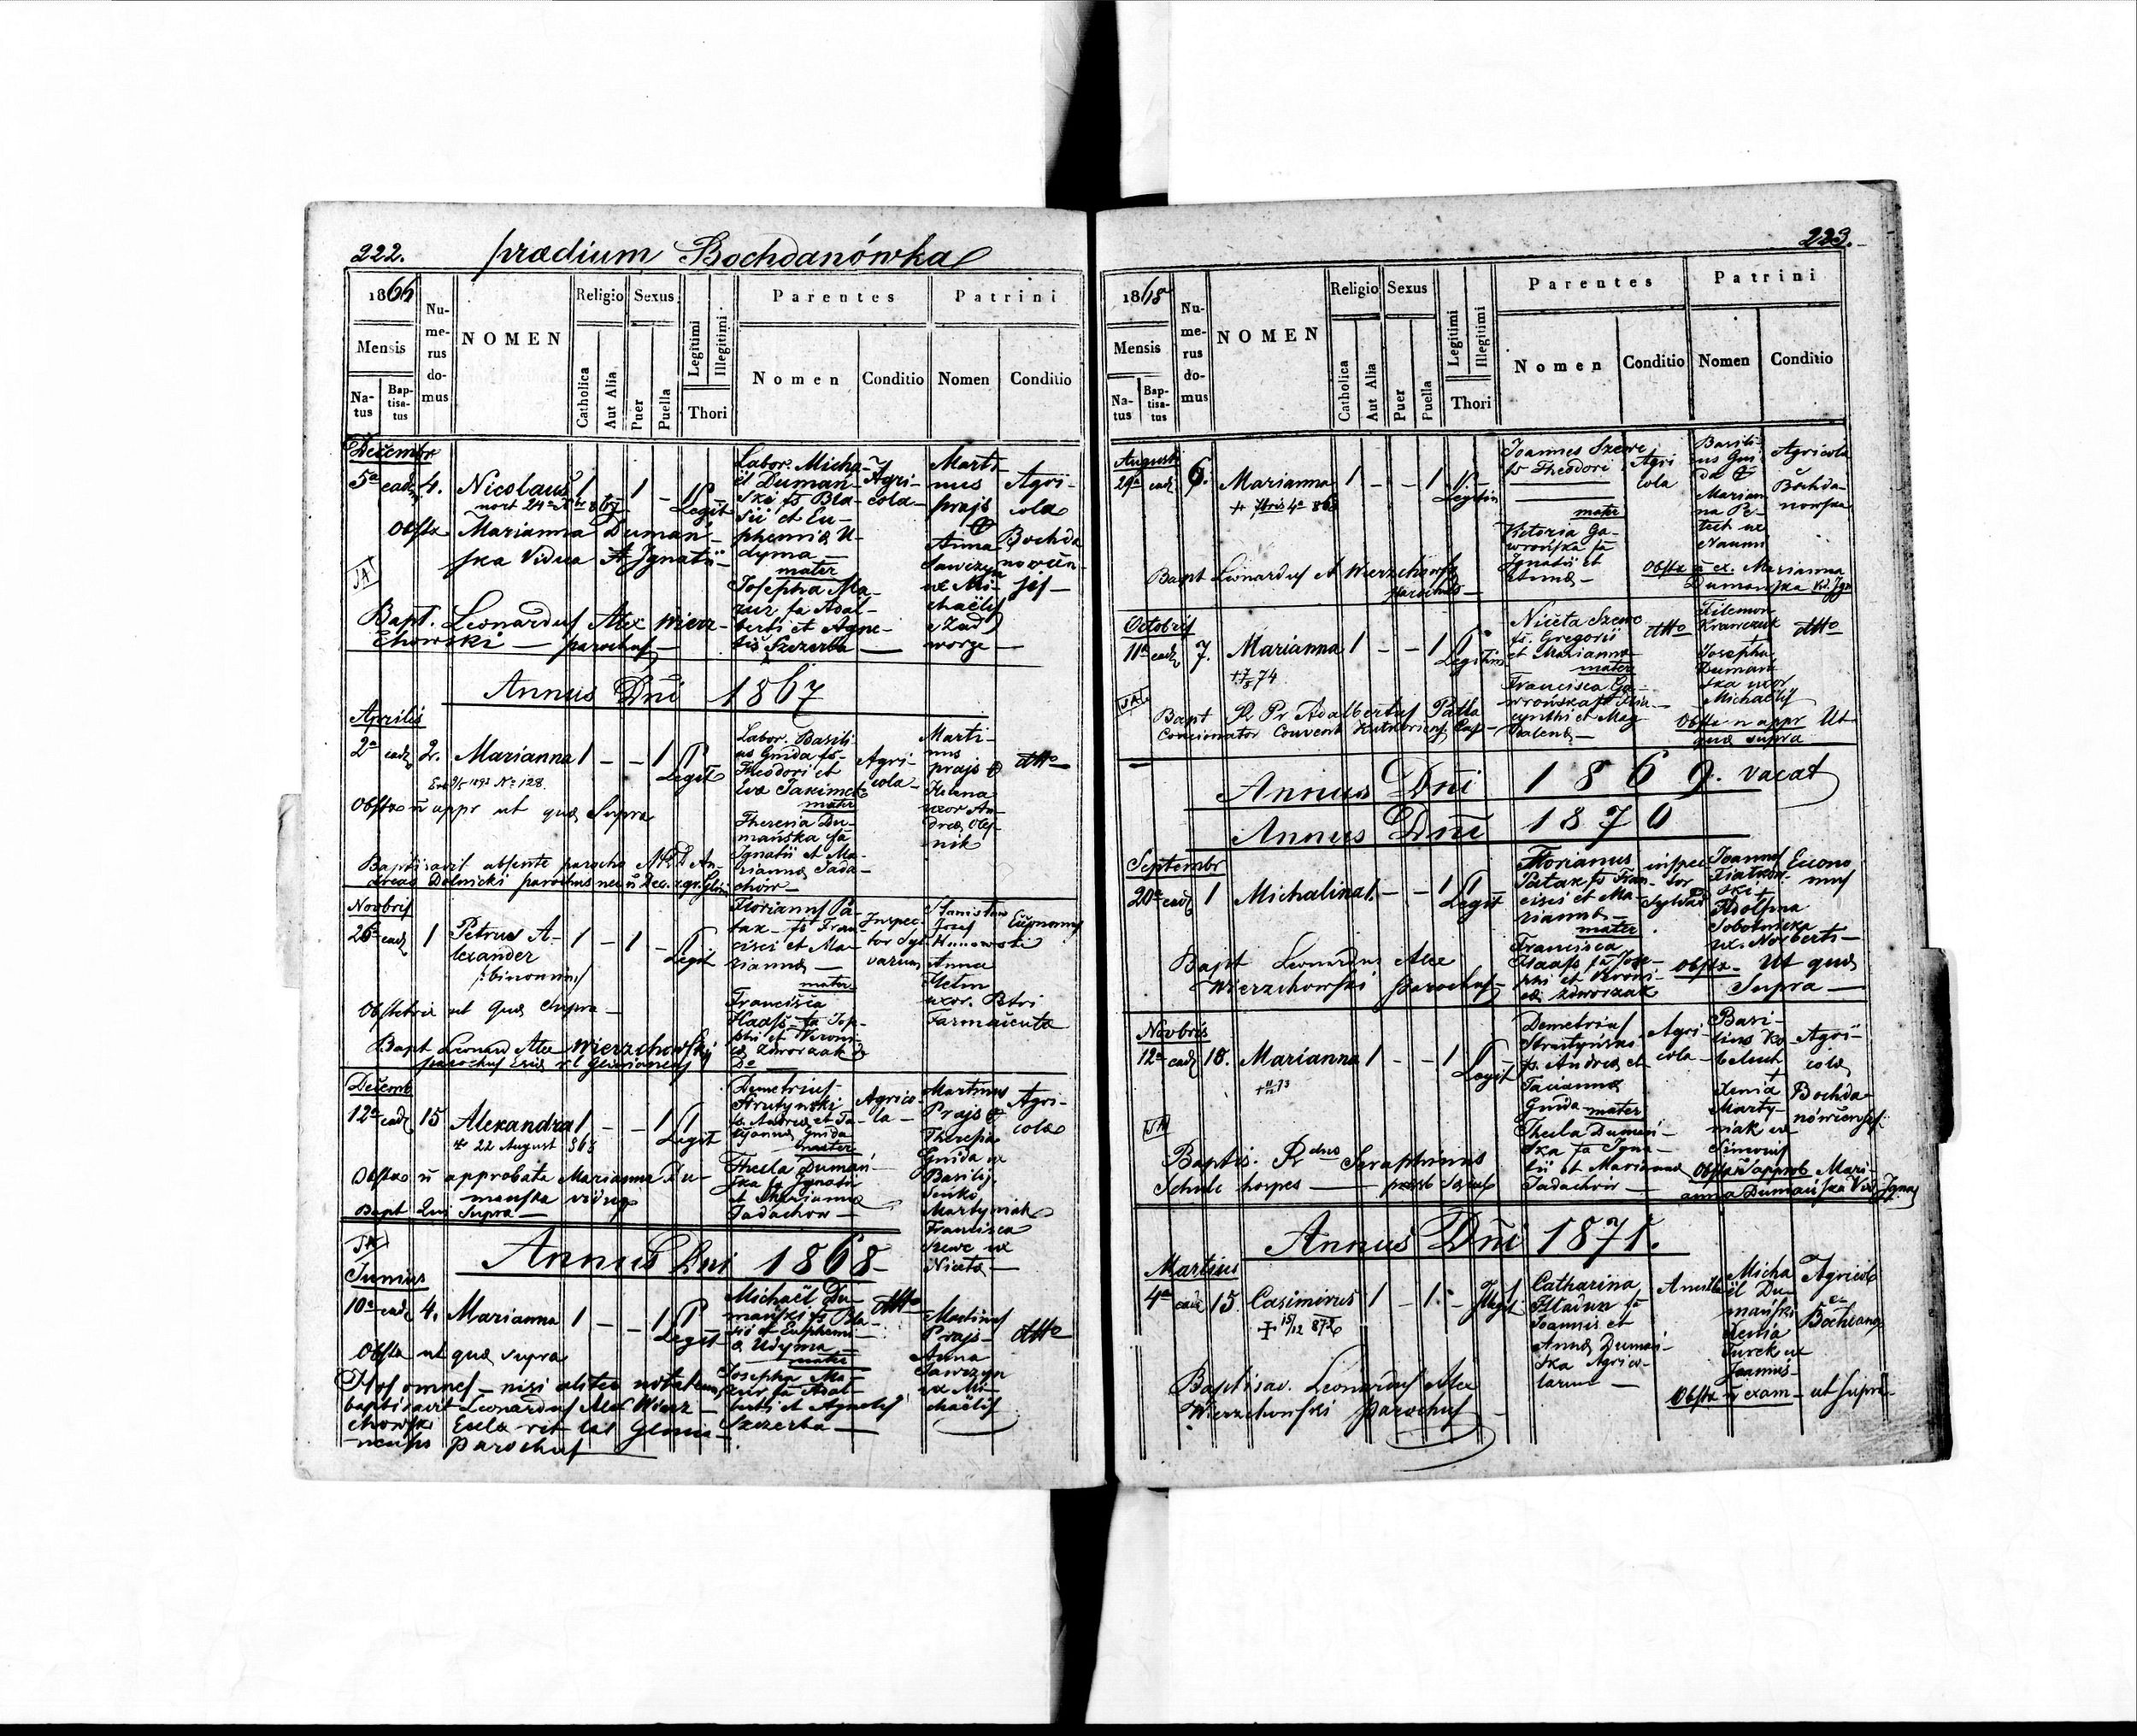 222.
praedium Bochdanówka
1866
Mensis
Na-
tus
Bap-
tisa-
tus
Nu-
me-
rus
do-
mus
NOMEN
Religio
Catholica
Aut Alia
Sexus
Puer
Puella
Legitimi
Illegitimi
Thori
Parentes
Nomen
Conditio
Patrini
Nomen
Conditio
Decembr
5a ead 4. Nicolaus 1 - 1 - 1 Legit
Labor. Micha-
ël Dumań-
ski fs Bla-
sii et Eu-
phemia U-
dyma —
mater
Josepha Ma-
zur fa Adal-
berti et Agne-
tis Szczerba —
Agri-
cola
Marti-
nus
prajs
&
Anna
Sawczyn
ux Mi-
chaëlis
Zad
worze —
Agri-
cola
Bochda
nowien-
sis —
Obstx Marianna Dumań-
ska Vidua Ignatii
Bapt. Leonardus Alex Wierz-
chowski — parochus
Annus Dni 1867
Aprilis
2a ead 2. Marianna 1 - - 1 1 Legit
Labor. Basili
us Gnida fs
Theodori et
Eva Jakimek
mater
Theresia Du-
mańska fa
Ignatii et Ma-
rianna Tada-
chów —
Agri-
cola
Marti-
nus
prajs &
Helena
uxor An-
drea Olej-
nik
dtto
Obstx n appr ut qua Supra
Baptisavit absente parocho An-
dreas Dolnicki parochus
Novbris
26 ead 1 Petrus A-
lexander
/:binomin:/
1 - 1 - 1 Legit
Florianus Pa-
tax fs Fran-
cisci et Ma-
rianna —
mater
Francisca
Haass fa Jose-
phi et Veroni-
ca Zdworzak
Inspec-
tor Syl-
varum
Stanislaw
Josef
Anna
Helm
uxor Petri
Farmaceuta
Economus
Obstetrix ut qua Supra —
Bapt Leonard Alex Wierzchowski
parochus
Decemb
12a ead 15 Alexandra 1 - - 1 1 Legit
+ 22 August 868
Demetrius
Strutynski
fs Andrea et Ta-
cianna Gnida
mater
Thecla Dumań-
ska fa Ignatii
et Marianna
Tadachow —
Agrico-
la —
Martinus
Prajs &
Theresia
Gnida ux
Basilij.
Senko
Martyniak
Francisca
Szewc ux
Niceta —
Agri-
cola
Obstx n approbata Marianna Du-
manska vidua
Bapt Qui Supra —
Annus Dni 1868
Junius
10a ead 4. Marianna 1 - - 1 1 Legit
Michaël Du-
mański fs Bla-
sii et Euphemi-
a Udyma —
mater
Josepha Ma-
zur fa Adal-
berti et Agnetis
Szczerba —
dtto
Martinus
Prajs —
Anna
Sawczyn
ux Mi-
chaëlis
dtto
Obstx ut qua supra
Hos omnes — nisi aliter notatum
baptisavit Leonardus Alex Wierz-
chowski Eccla rit lat Glinia-
nensis Parochus
223.
1868
Mensis
Na-
tus
Bap-
tisa-
tus
Nu-
me-
rus
do-
mus
NOMEN
Religio
Catholica
Aut Alia
Sexus
Puer
Puella
Legitimi
Illegitimi
Thori
Parentes
Nomen
Conditio
Patrini
Nomen
Conditio
August
29a ead 6. Marianna 1 - - 1 Legitim
+ 7bris 4a 868
Joannes Szewc
fs Theodori
mater
Victoria Ga-
wrońska fa
Ignatii et
Anna —
Agri
cola
Basili-
us Gni-
da &
Marian
na Pe-
tech ux
Naumi
Agricola
Bochda-
nowska
Bapt Leonardus A Wierzchowski
parochus —
Obstx n ex. Marianna
Dumanska Vid. Ign
Octobris
11a ead 7. Marianna 1 - - 1 Legitim
Niceta Szewc
fs. Gregorii
et Marianna
mater
Francisca Ga-
wrońska fa Hia-
cynthi et Mag-
dalena —
dtto
Filemon
Krawczuk
+
Josepha
Dumań
ska uxor
Michaëlis
dtto
Bapt R Pr Adalbertus Patla
Concionator Convent
Obstx n appr Ut
qua supra
Annus Dni 1869. vacat
Annus Dni 1870
Septembr
20a ead 1 Michalina 1. - - 1 1 Legit
Florianus
Patax fs Fran-
cisci et Ma-
rianna —
mater
Francisca
Haass fa Jose-
phi et Veroni-
ca Zdworzak
inspec-
tor
Sylvar
Joannes
Fiatkow-
ski +
Adolfina
Sobotnicka
ux. Norberti —
Econo
mus
Bapt Leonardus Alex
Wierzchowski Parochus
Obstx — Ut qua
Supra —
Novbris
12a ead 18. Marianna 1 - - 1 Legit
Demetrius
Strutyński
fs. Andrea et
Tacianna
Gnida mater
Thecla Dumań-
ska fa Igna-
tii et Marianna
Tadachów —
Agri
cola —
Basi-
lius Ko-
beluch
+
Xenia
Marty-
niak ux
Simonis
Agri-
cola
Bochda
nówiensis
Baptis. Rdus Seraphinus
Schule hospes —
Obstx n approb Mari-
anna Dumańska Vid Ignat
Annus Dni 1871.
Martius
4a ead 15. Casimirus 1 - 1. - Illegit
+ 15/12 872
Catharina
Hladun fa
Joannis et
Anna Dumań-
ska Agrico-
larum —
Ancilla
Micha
ël Du-
mański
Xenia
Turek ux
Joannis —
Agricola
Bochdano
Baptisav. Leonardus Alex
Wierzchowski parochus
Obstx n exam — ut supra